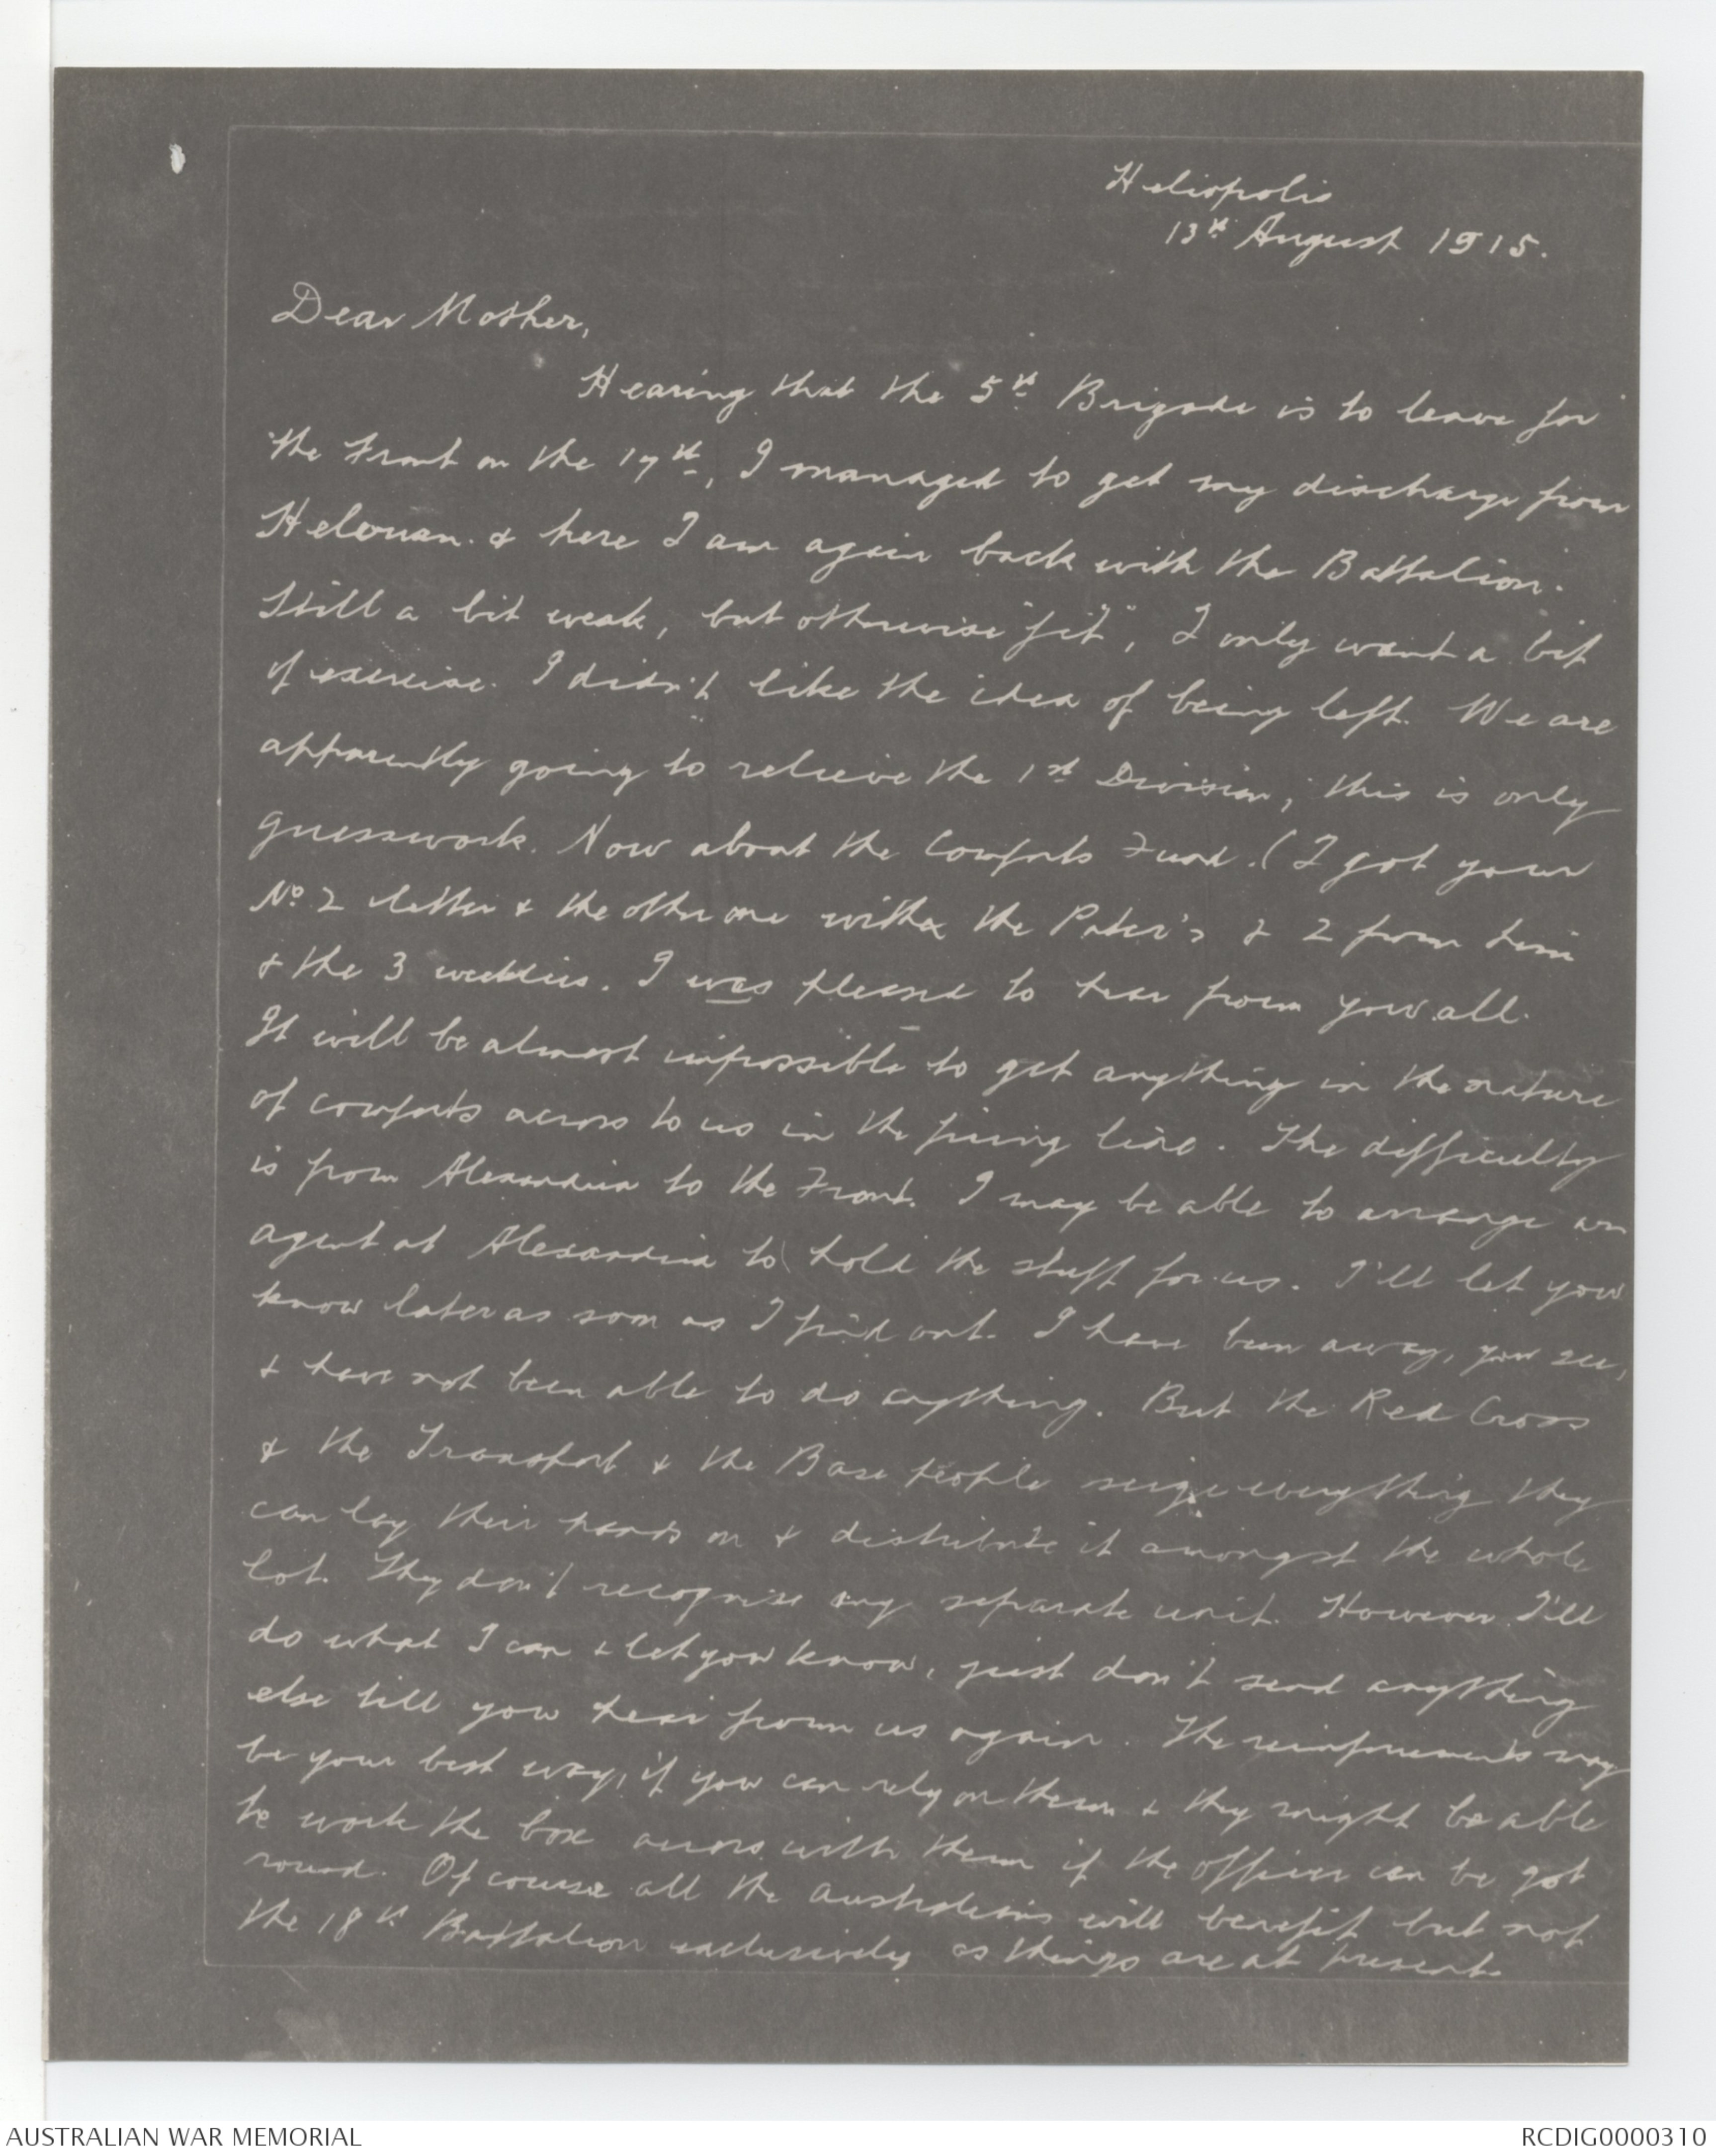 Heliopolis
13th August 1915.
Dear Mother,
Hearing that the 5th Brigade is to leave for
the Front on the 17th, I managed to get my discharge from
Helouan & here I am again back with the Battalion.
Still a bit weak, but otherwise "fit", I only want a bit
of exercise. I didn't like the idea of being left. We are
apparently going to relieve the 1st Division; this is only
guesswork. Now about the Comforts Fund. (I got your
No 2 letter & the other one with the Pater's & 2 from him
& the 3 weeklies. I was pleased to hear from you all.
It will be almost impossible to get anything in the nature
of comforts across to us in the firing line. The difficulty
is from Alexandria to the Front. I may be able to arrange an
agent at Alexandria to hold the stuff for us. I'll let you
know later as soon as I find out. I have been away, you see,
& have not been able to do anything. But the Red Cross
& the Transport & the Base people seize everything they
can lay their hands on & distribute it amongst the whole
lot. They don't recognise any separate unit. However I'll
do what I can & let you know, just don't send anything
else till you hear from us again. The reinforcements may
be your best way, if you can rely on them & they might be able
to work the box across with them if the officer can be got
round. Of course all the Australians will benefit but not
the 18th Battalion exclusively as things are at present.
AUSTRALIAN WAR MEMORIAL
RCDIG0000310